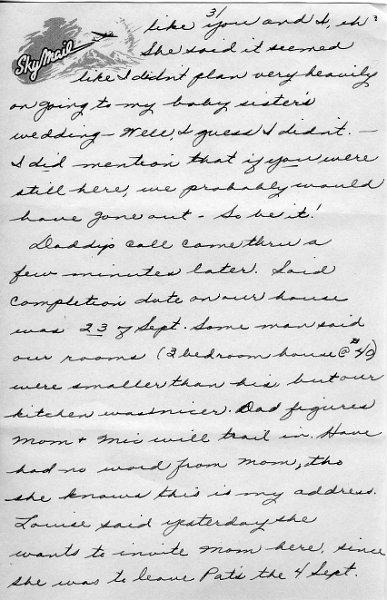 3/
Sky Mail
like you and I, eh?
She said it seemed
like I didn't plan very heavily
on going to my baby sister's
wedding - Well, I guess I didn't. -
I did mention that if you were
still here, we probably would
have gone out - So be it!
Daddy's call came thru a
few minutes later. Said
completion date on our house
was 23 of Sept. Some man said
our rooms (2 bedroom house @ #40)
were smaller than his but our
kitchen was nicer. Dad figures
Mom + Mic will trail in. Have
had no word from Mom, tho
she knows this is my address.
Louise said yesterday she
wants to invite Mom here, since
she was to leave Pat's the 4 Sept.